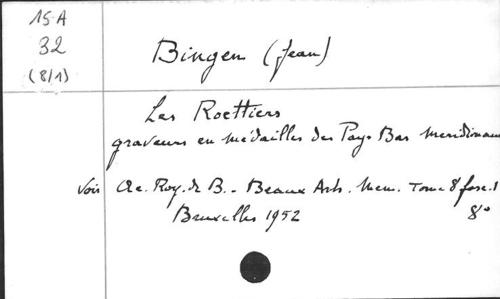 15 A
32
(8/1)
Bingen (Jean)
Les Roettiers
graveurs en médailles des Pays Bas meridionaux
Voir Ac. Roy. de B. - Beaux Arts. Mem. Tome 8 fasc. 1
Bruxelles 1952 8°